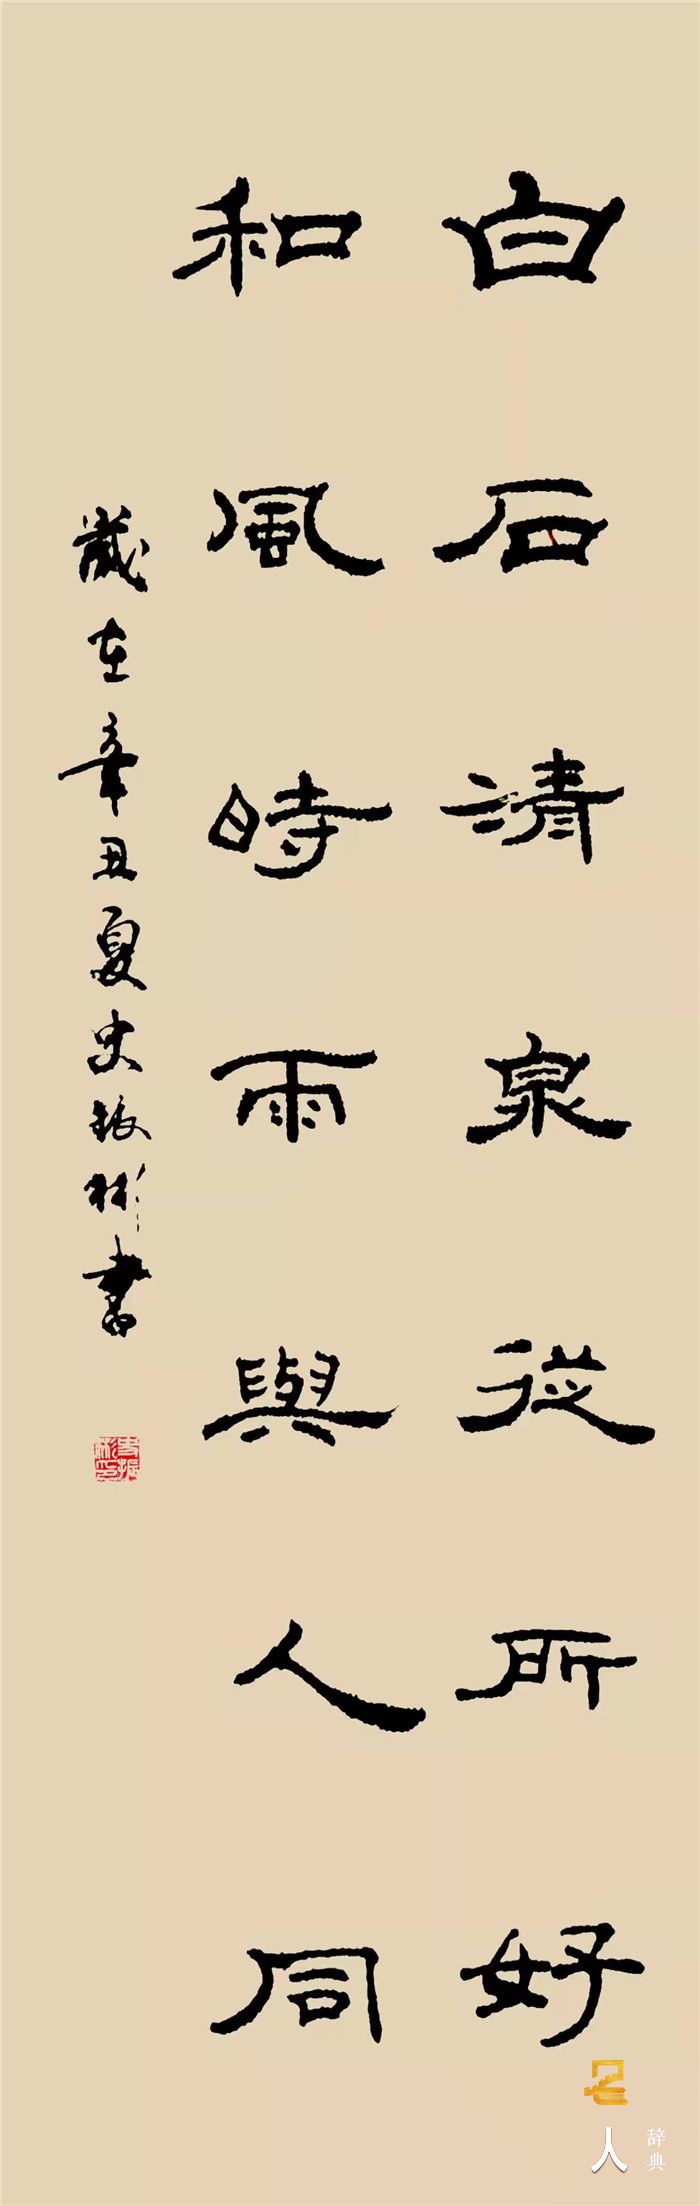 白石清泉從所好
和風時雨與人同
歲在辛丑夏史振彬書
史振彬印
名人辞典